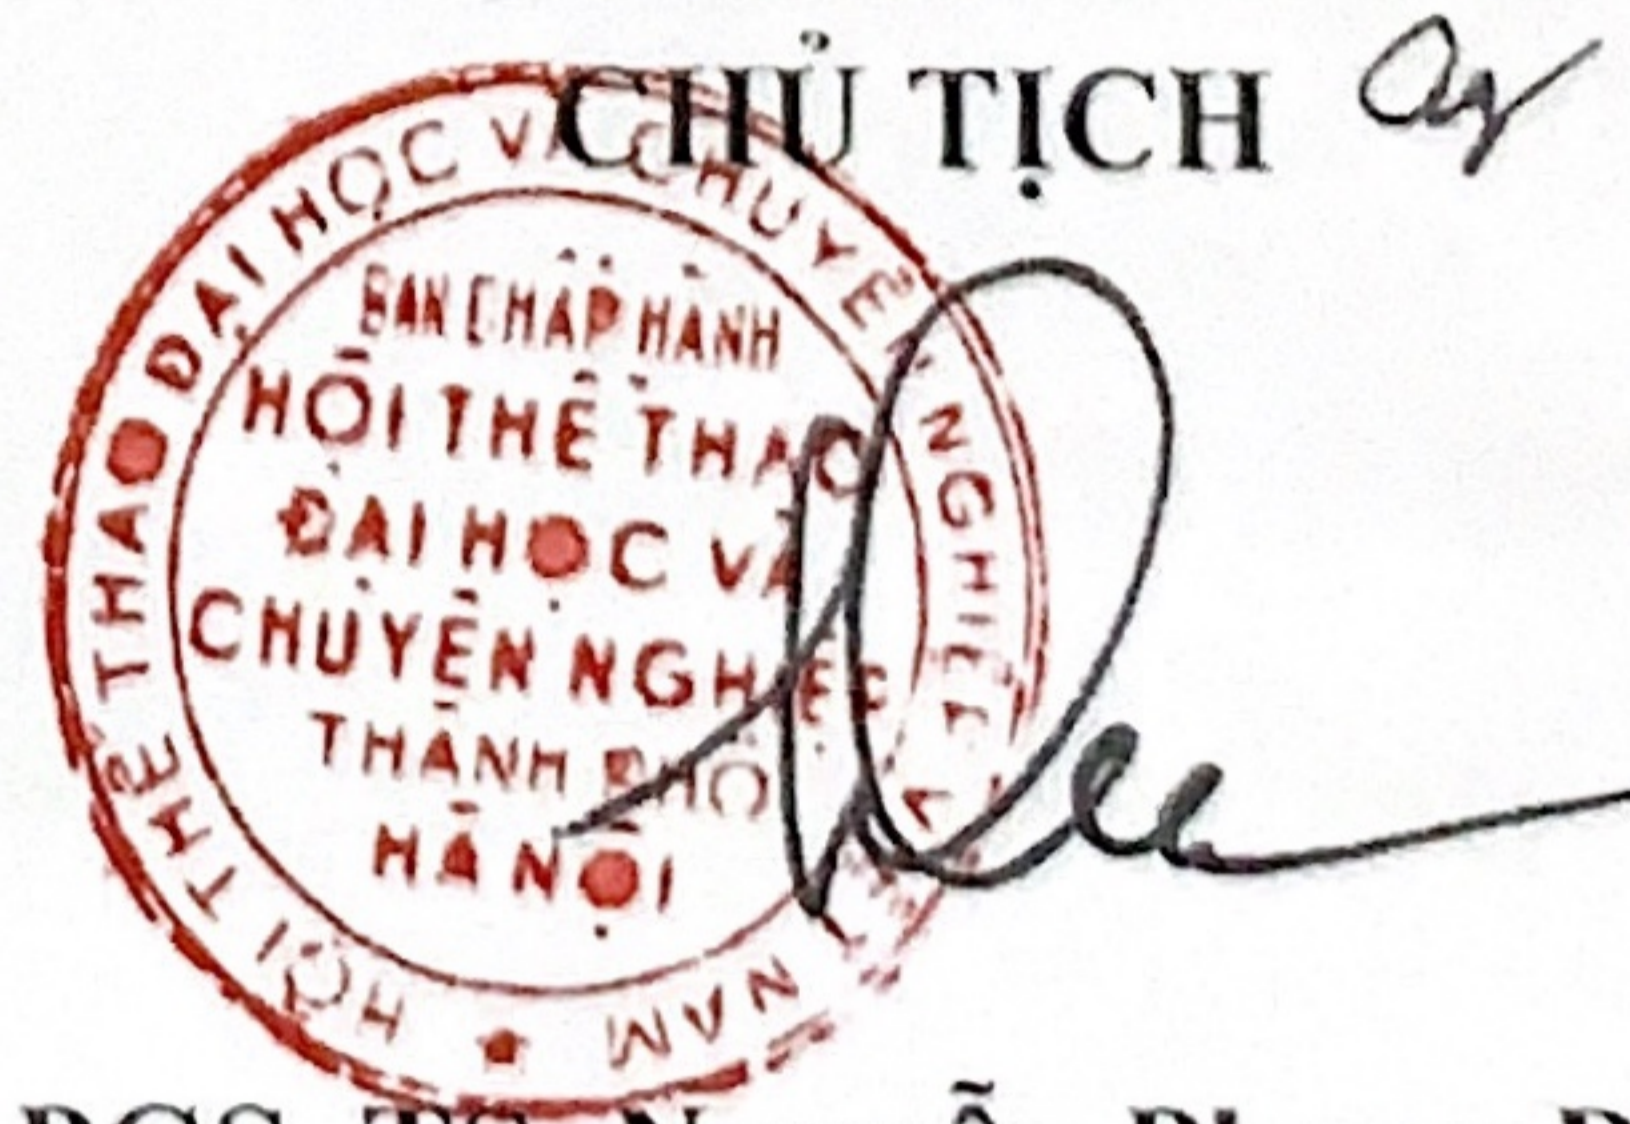 CHỦ TỊCH
HỘI THỂ THAO ĐẠI HỌC VÀ CHUYÊN NGHIỆP VIỆT NAM
BAN CHẤP HÀNH
HỘI THỂ THAO
ĐẠI HỌC VÀ
CHUYÊN NGHIỆP
THÀNH PHỐ
HÀ NỘI
PGS. TS. Nguyễn